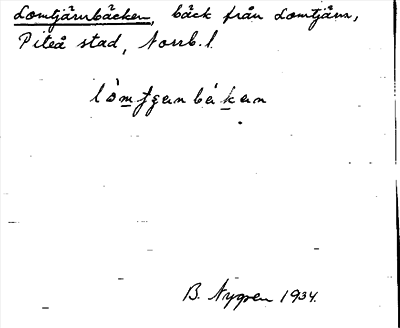 Lomtjärnbäcken, bäck från Lomtjärn,
Piteå stad, Norrb. l.
B. Nygren 1934.